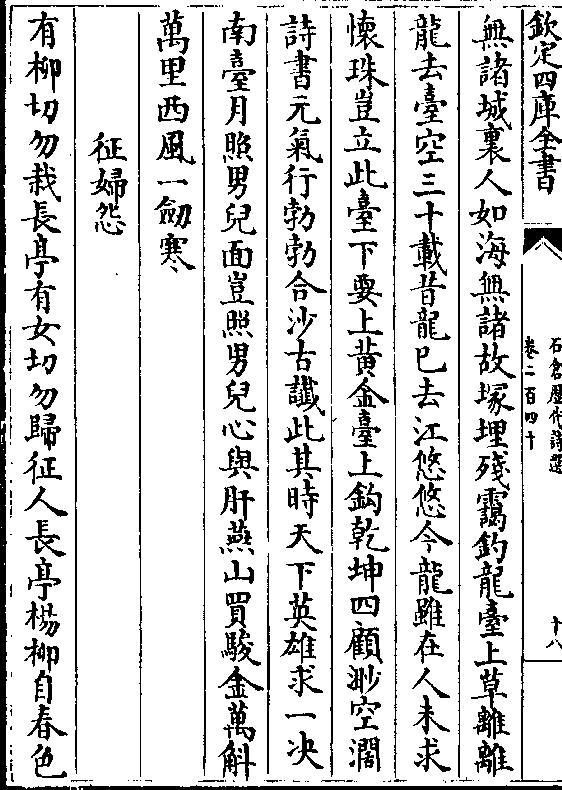 欽定四庫全書
石倉歷代詩選
卷二百四十
十八
無諸城裏人如海無諸故塚埋殘靄釣龍臺上草離離
龍去臺空三十載昔龍已去江悠悠今龍雖在人未求
懷珠豈立此臺下要上黃金臺上鈎乾坤四顧渺空濶
詩書元氣行勃勃合沙古讖此其時天下英雄求一决
南臺月照男兒面豈照男兒心與肝燕山買駿金萬斛
萬里西風一劒寒
征婦怨
有柳切勿栽長亭有女切勿歸征人長亭楊柳自春色